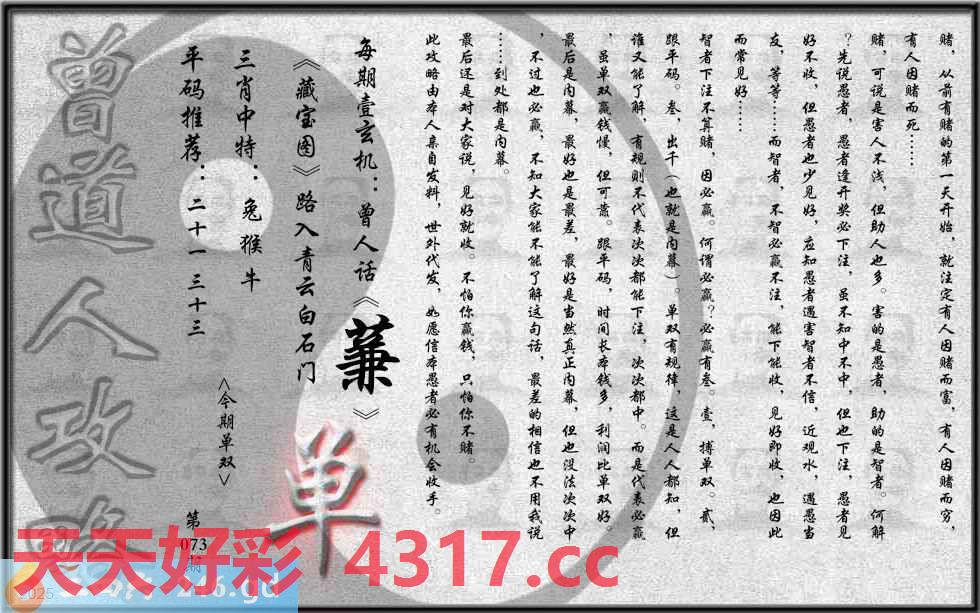 赌，从前有赌的第一天开始，就注定有人因赌而富，有人因赌而穷，
有人因赌而死……
赌，可说是害人不浅，但助人也多。害的是愚者，助的是智者。何解
？先说愚者，愚者逢开奖必下注，虽不知中不中，但也下注，愚者见
好不收，但愚者也少见好，应知愚者遇害智者不信，近观水，遇愚当
友，等等……而智者，不智必赢不注，能下能收，见好即收，也因此
而常见好……
智者下注不算赌，因必赢。何谓必赢？必赢有叁。壹，搏单双。贰，
跟平码。叁，出千（也就是内幕）。单双有规律，这是人人都知，但
谁又能了解，有规则不代表次次都能下注，次次都中。而是代表必赢
，虽单双赢钱慢，但可靠。跟平码，时间长本钱多，利润比单双好。
最后是内幕，最好也是最差，最好是当然真正内幕，但也没法次次中
，不过也必赢，不知大家能不能了解这句话，最差的相信也不用我说
……到处都是内幕。
最后还是对大家说，见好就收。不怕你赢钱，只怕你不赌。
此攻略由本人亲自发料，世外代发，如愿信本愚者必有机会收手。
每期壹玄机：曾人话《蒹》
《藏宝图》路入青云白石门
三肖中特：兔猴牛
平码推荐：二十一 三十三
<今期单双>
单
第
073
期
曾道人攻略
天天好彩 4317.cc
2025
246.gd